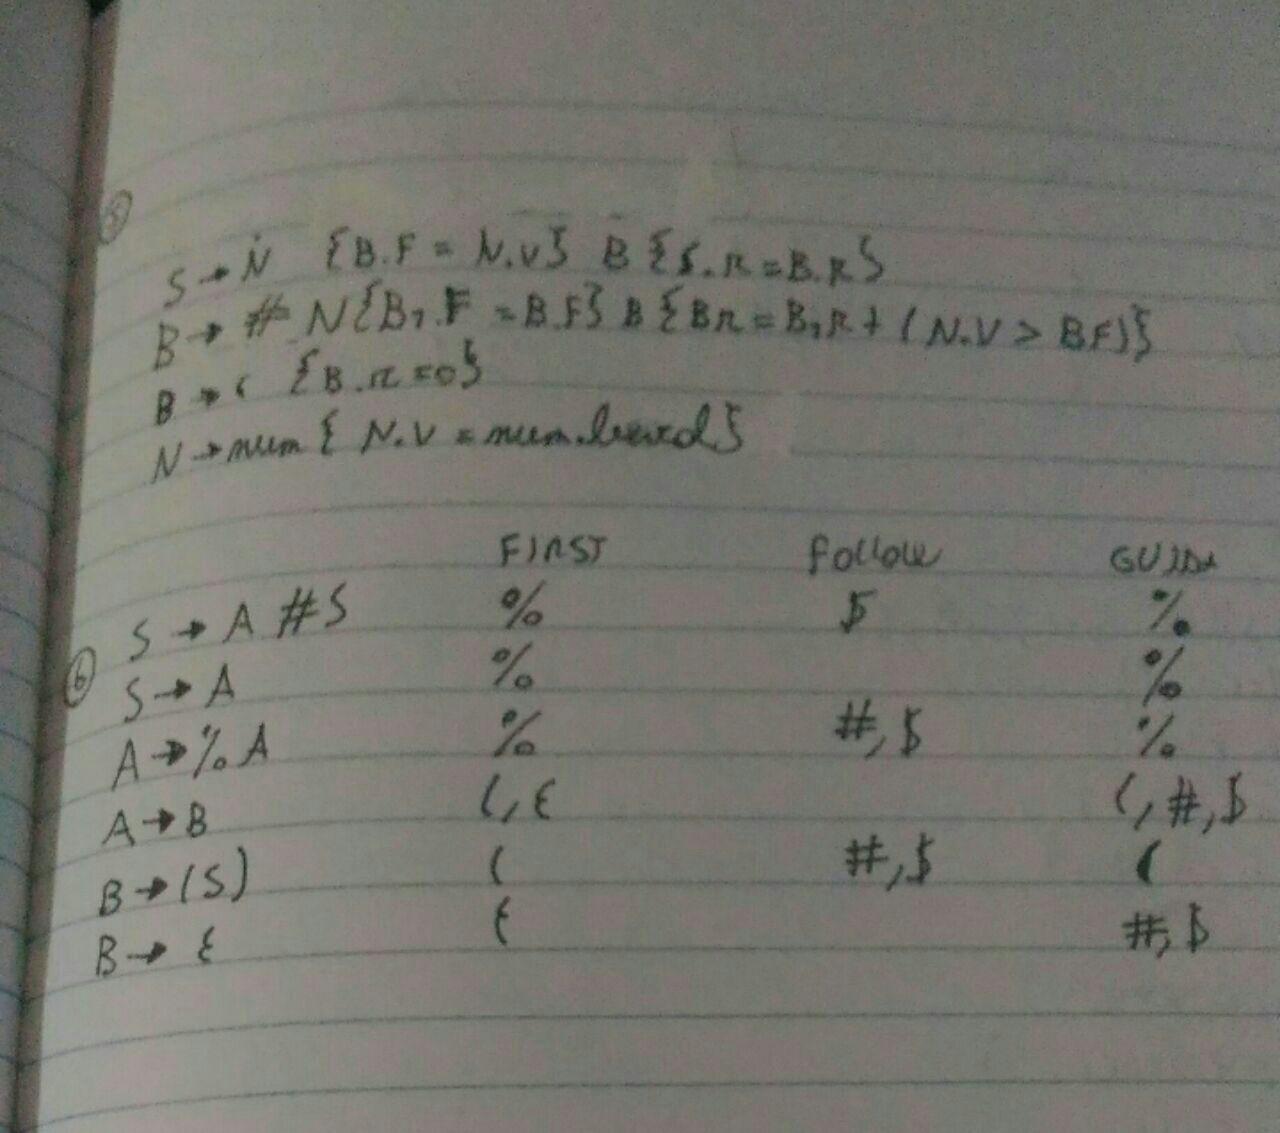 5
S → N {B.F = N.V} B {S.R = B.R}
B → # N {B1.F = B.F} B {BR = B1R + (N.V > BF)}
B → ε {B.R = 0}
N → num { N.V = num.lexval}
FIRST Follow GUIDA
6 S → A #S % $ %
S → A % %
A → % A % #, $ %
A → B (, ε (, #, $
B → (S) ( #, $ (
B → ε ε #, $